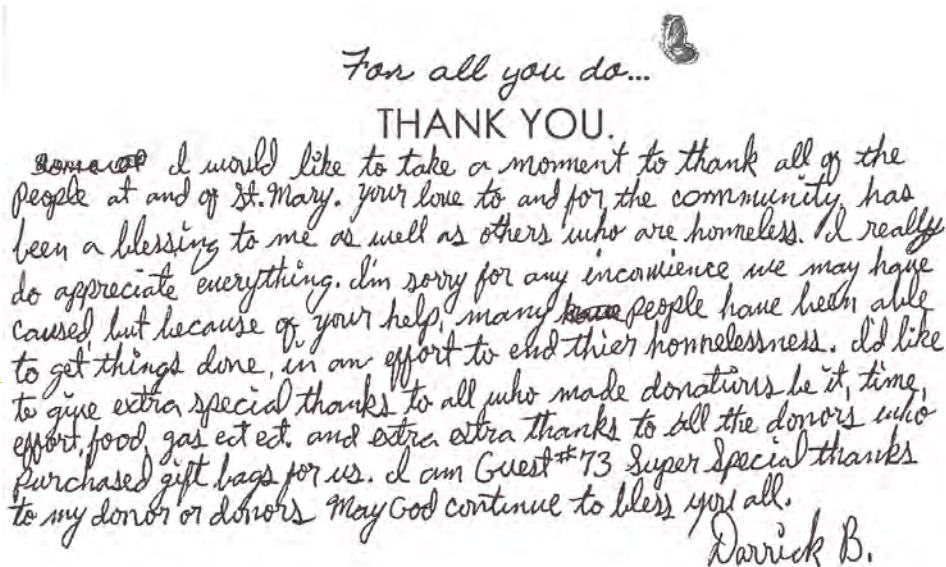 For all you do...
THANK YOU.
I would like to take a moment to thank all of the
people at and of St. Mary. your love to and for the community has
been a blessing to me as well as others who are homeless. I really
do appreciate everything. I'm sorry for any inconvience we may have
caused, but because of your help, many people have been able
to get things done, in an effort to end thier homelessness. I'd like
to give extra special thanks to all who made donations be it, time,
effort, food, gas ect ect. and extra extra thanks to all the donors who
purchased gift bags for us. I am Guest #73 Super Special thanks
to my donor or donors May God continue to bless you all.
Darrick B.